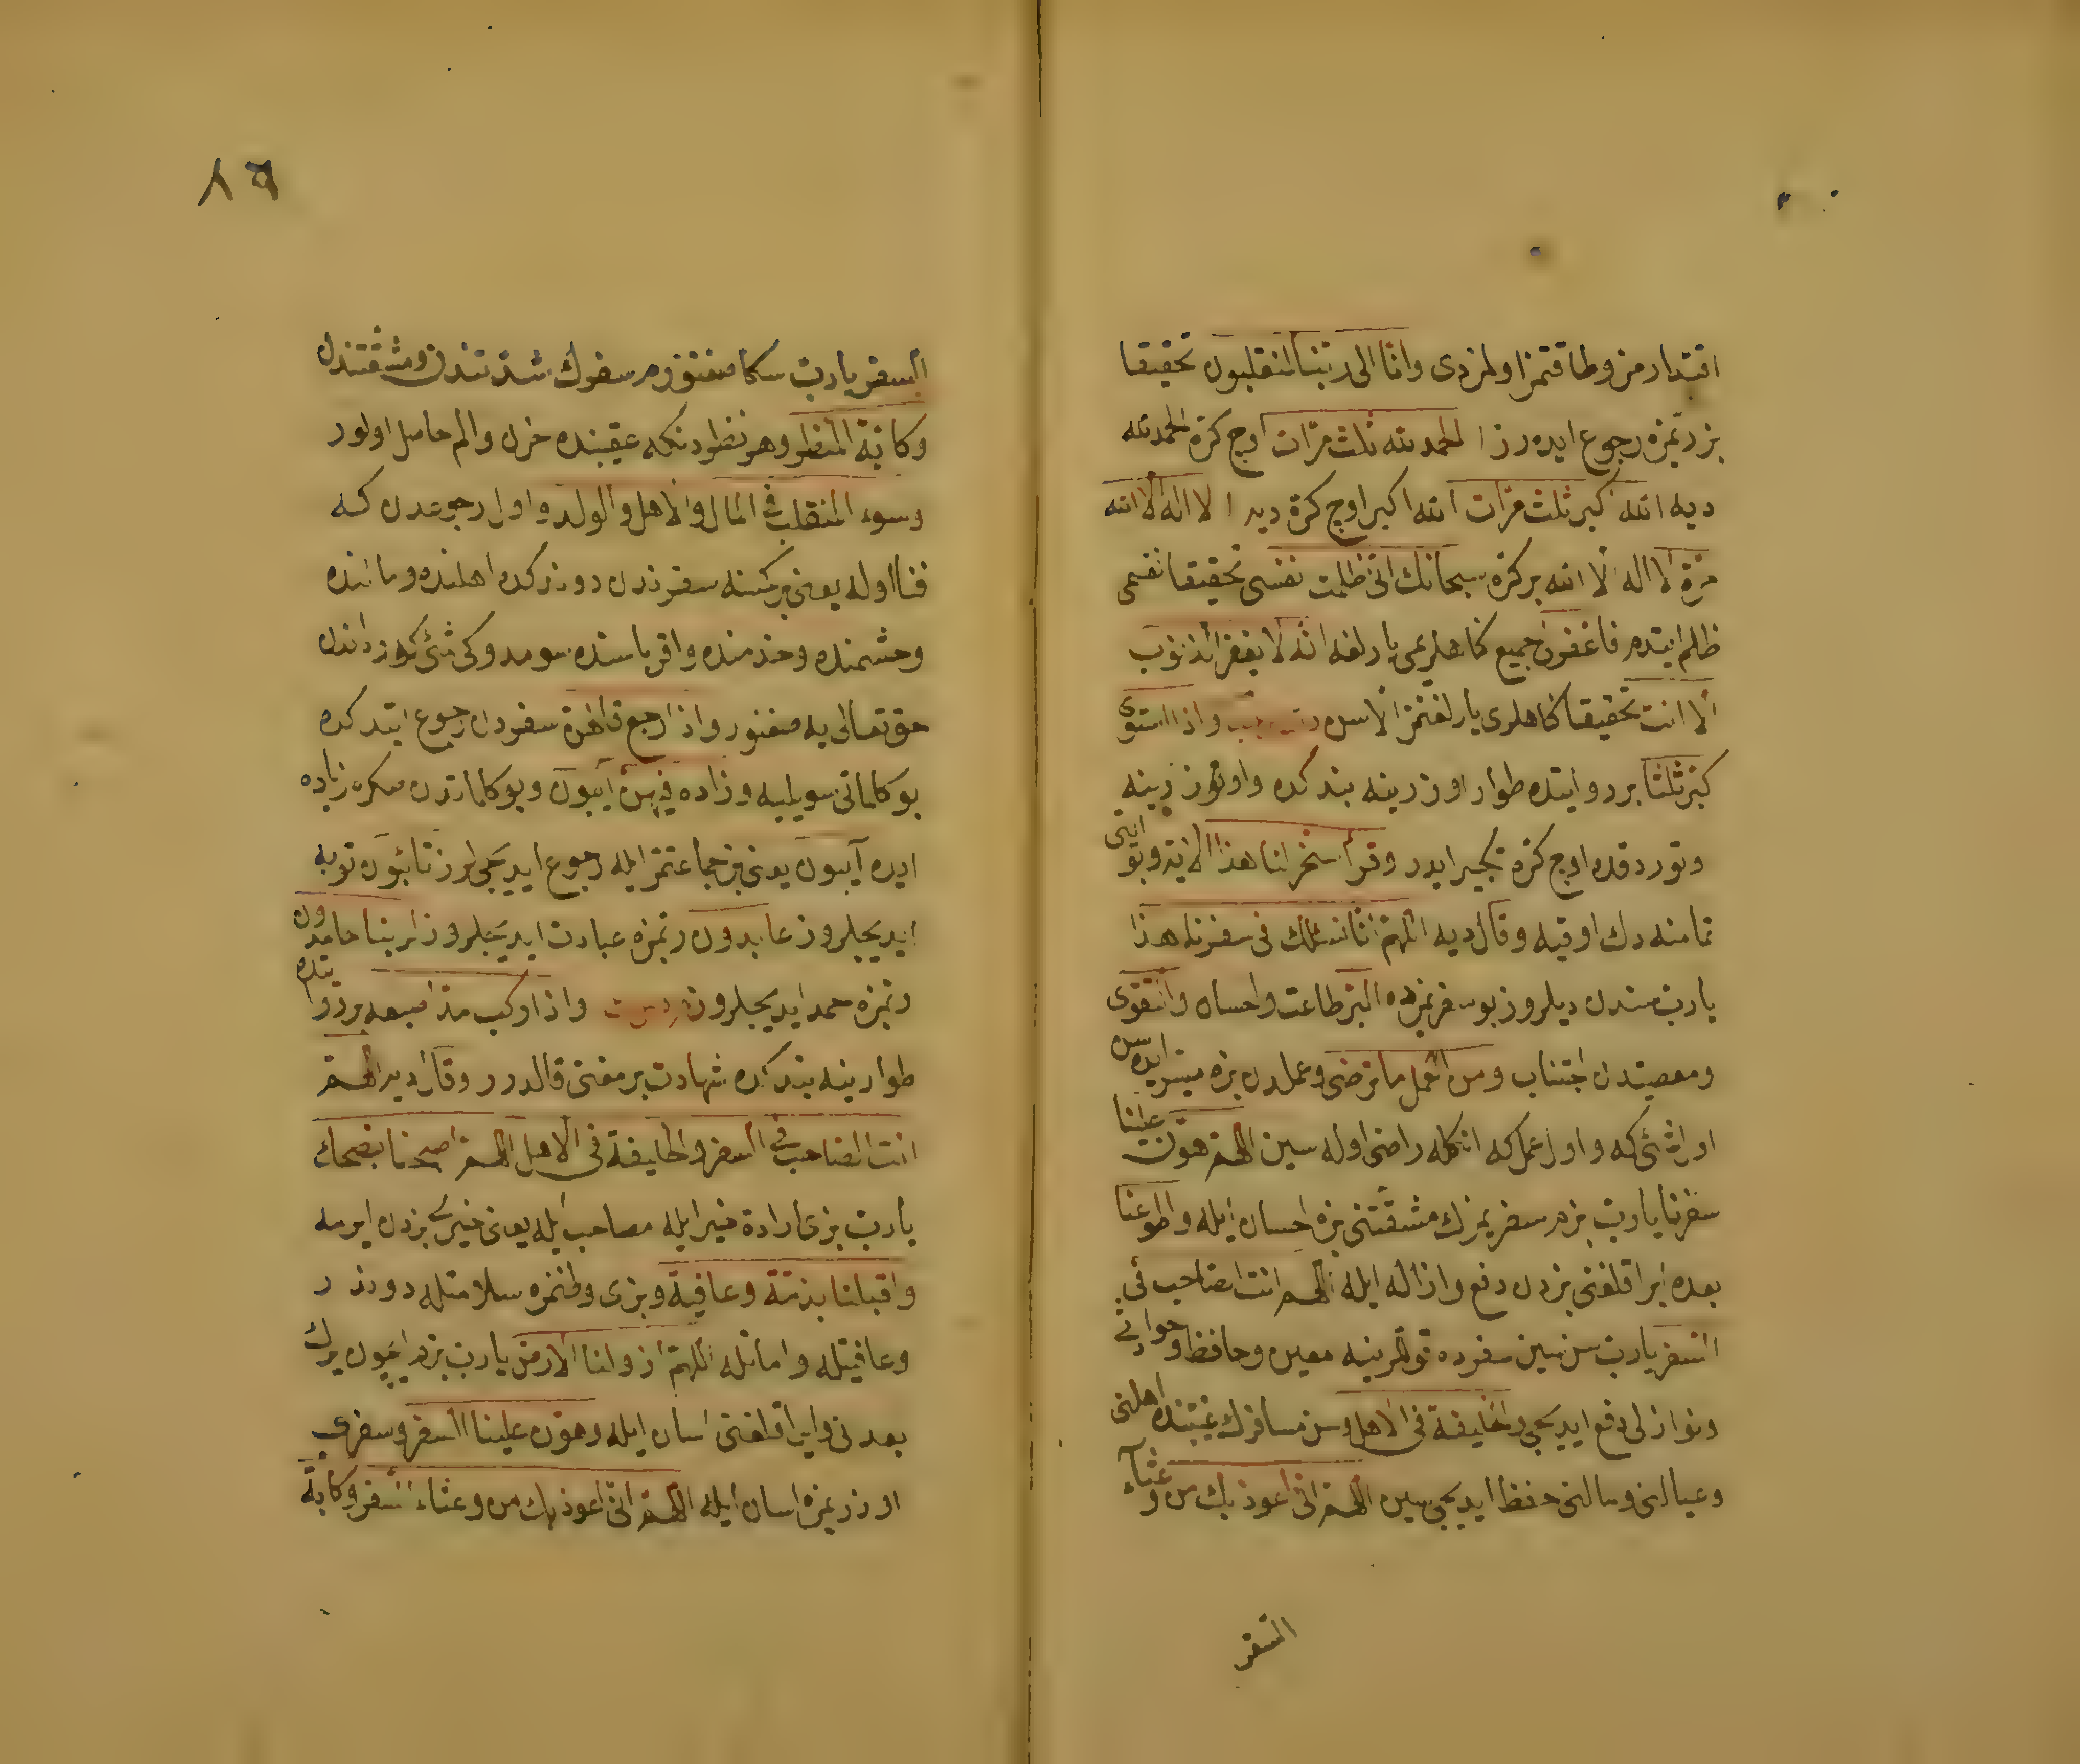 اقتدارمز وطاقتمز اولمزدى وانا الى ربنا لمنقلبون تحقيقا
بز ربمزه رجوع ايده رز الحمد لله ثلث مرات اوچ كرة الحمد لله
ديه الله اكبر ثلث مرات الله اكبر اوچ كرة ديه لا اله الا الله
مرة لا اله الا الله بر كره سبحانك انى ظلمت نفسى تحقيقا نفسمى
ظلم ايتدم فاغفرلى جميع كناهلريمى يارلغه انه لا يغفر الذنوب
الا انت تحقيقا كناهلرى يارلغمز الا سن واذا استوى
كبر ثلثا بردو ايتده طوار اوزرينه بندكده واوتوز رينه
وتوردقده اوچ كرة تكبير ايدر وقرأ سخر لنا هذا الاية وبو ايتى
تمامنه دك اوقيه وقال ديه اللهم انا نسئلك فى سفرنا هذا
يارب سندن ديلروز بو سفريمزده البر طاعت واحسان والتقوى
ومعصيتدن اجتناب ومن العمل ما ترضى وعملدن بزه ميسر ايده سن
اول شئى كه واول عمل كه انكله راضى اوله سين اللهم هون علينا
سفرنا يارب بزم سفريمزك مشقتنى بزه احسان ايله واطو عنا
بعده ايراقلغنى بزدن دفع وازاله ايله اللهم انت الصاحب فى
السفر يارب سن سين سفرده قوللرينه معين وحافظ وحوادثى
ونوازلى دفع ايديجى والخليفة فى الاهل وسن مسافرك غيبتنده اهلنى
وعيالنى ومالنى حفظ ايديجى سين اللهم انى اعوذ بك من وعثاء
السفر
٨٦
السفر يارب سكا صغنورم سفرك شدتندن ومشقتندن
وكابة المنظر وهر نظردنكه عقبنده حزن والم حاصل اولور
وسوء المنقلب فى المال والاهل والولد واول رجوعدن كه
فنا اوله يعنى بر كسنه سفرندن دوندكده اهلنده ومالنده
وحشمنده وخدمنده واقرباسنده سومدوكى شئى كورداندن
حق تعالى يه صغنور واذا رجع قالهن سفردن رجوع ايتدكده
بو كلماتى سويليه وزاده فيهن آيبون وبو كلماتدن صكره زياده
ايده آيبون يعنى بز جماعتمز ايله رجوع ايديجيلرز تائبون توبه
ايديجيلروز عابدون ربمزه عبادت ايديجيلروز لربنا حامدون
ربمزه حمد ايديجيلروز واذا ركب مد اصبعه بردو ايتده
طوارينه بندكده شهادت برمغنى قالدرر وقال ديه اللهم
انت الصاحب فى السفر والخليفة فى الاهل اللهم اصحبنا بنصحك
يارب بزى ارادة خير ايله مصاحب ايله يعنى خيرى بزدن ايرمه
واقبلنا بذمة وعافية وبزى وطنمزه سلامتله دوندر
وعافيتله وامانله اللهم ازو لنا الارض يارب بزم ايچون يرك
بعدنى وايراقلغنى اسان ايله وهون علينا السفر وسفرى
اوزريمزه اسان ايله اللهم انى اعوذ بك من وعثاء السفر وكابة